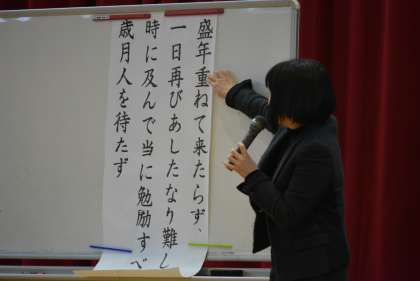 盛年重ねて来たらず、
一日再びあしたなり難し
時に及んで当に勉励すべ
歳月人を待たず